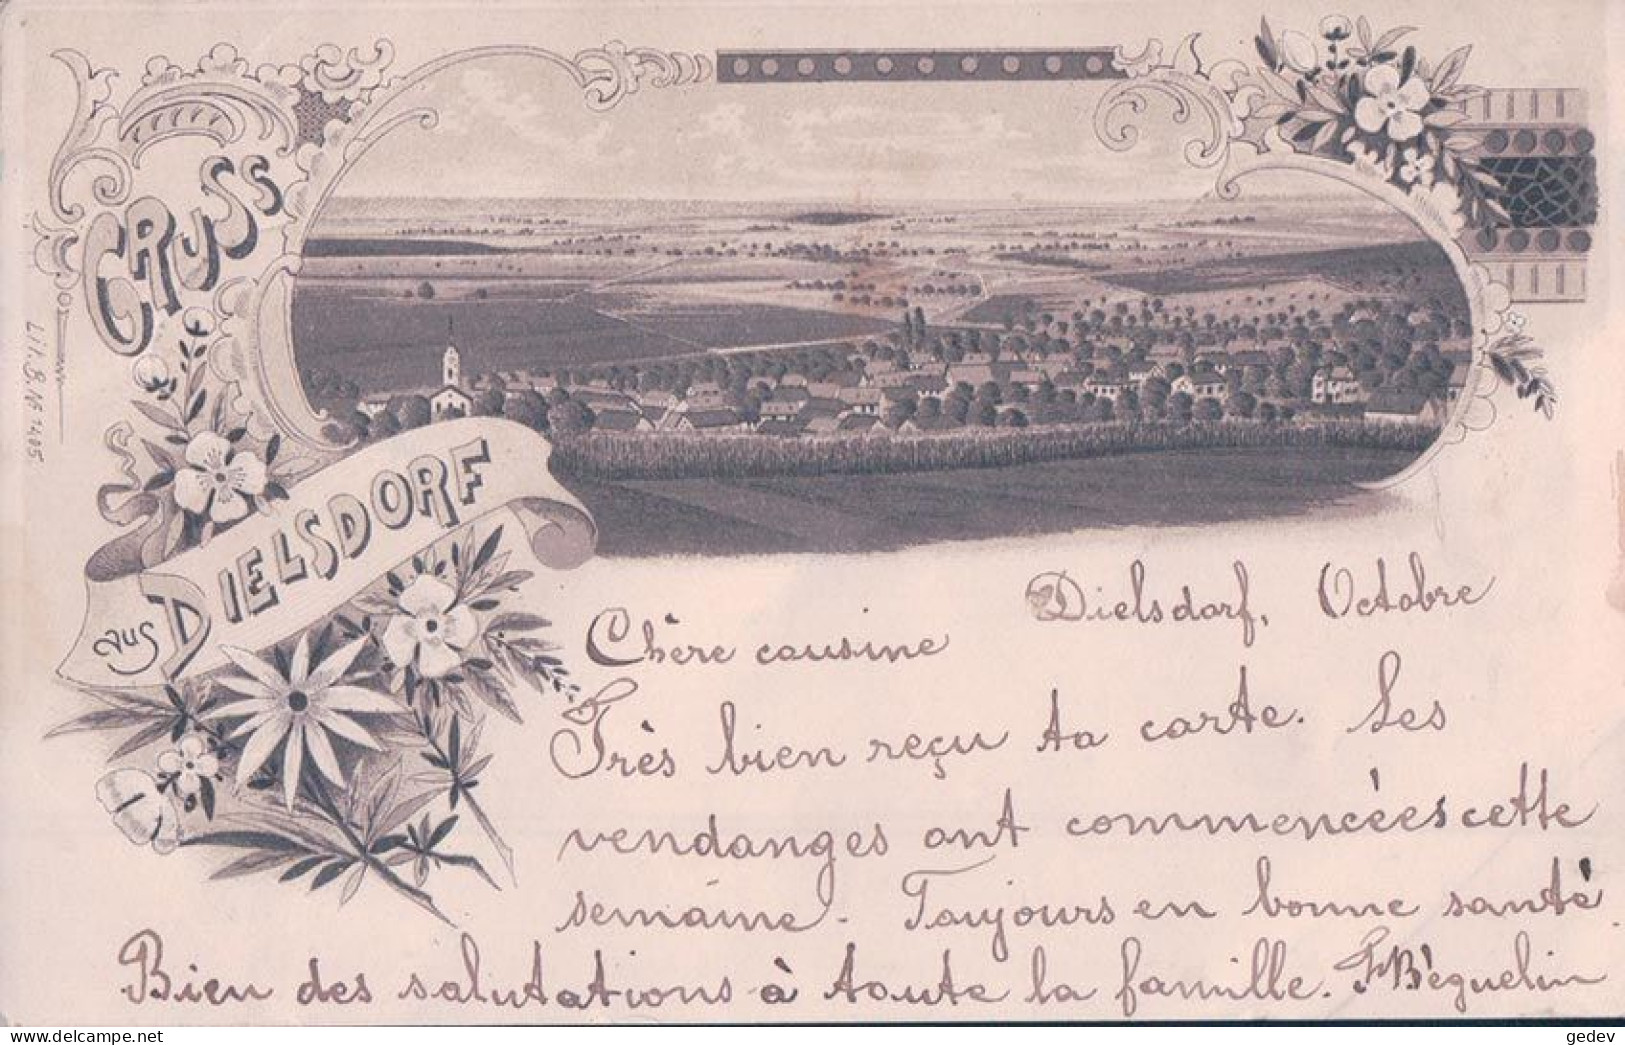 GRUSS
aus DIELSDORF
Lit. S. Nº 1405.
Dielsdorf, Octobre
Chère cousine
Très bien reçu ta carte. Les
vendanges ont commencées cette
semaine. Toujours en bonne santé.
Bien des salutations à toute la famille. F Béguelin
gedev